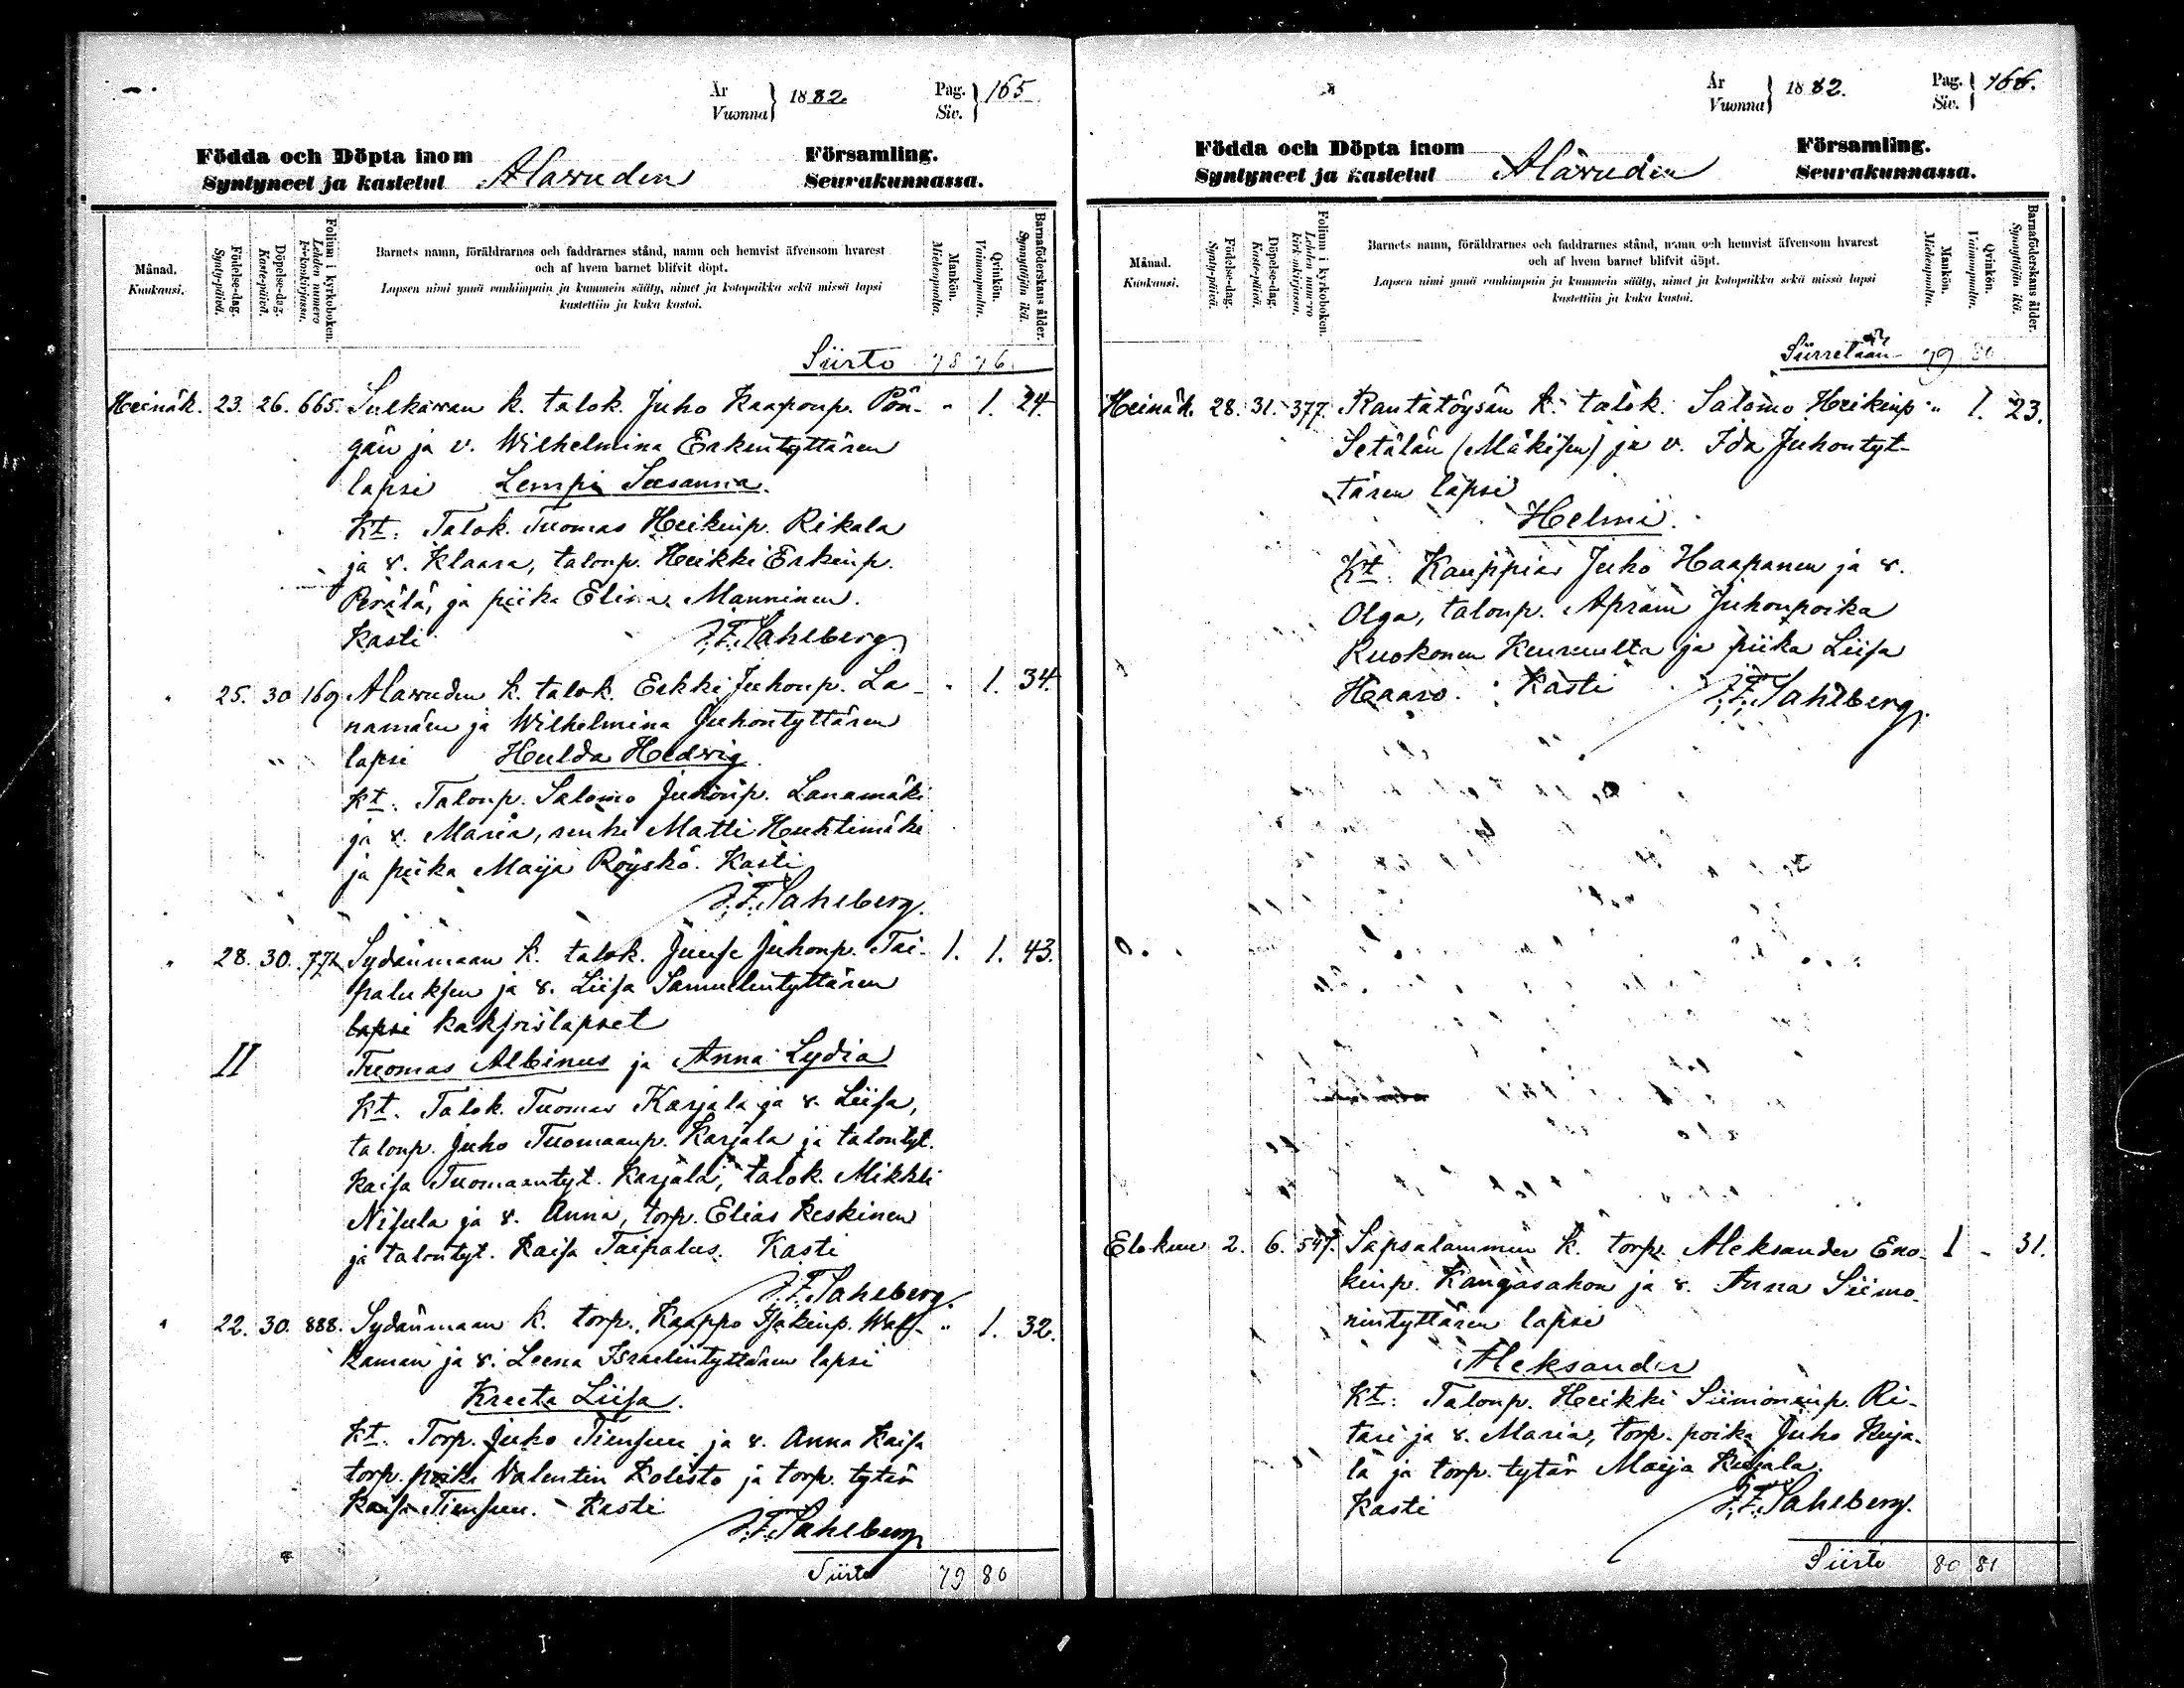 År
Vuonna } 1882. Pag.
Siv. } 165
Födda och Döpta inom Församling.
Syntyneet ja kastetut Alawuden Seurakunnassa.
Månad.
Kuukausi.
Födelse-dag.
Synty-päivä.
Döpelse-dag.
Kaste-päivä.
Folium i kyrkoboken.
Lehden numero
kirkonkirjassa.
Barnets namn, föräldrarnes och faddrarnes stånd, namn och hemvist äfvensom hvarest
och af hvem barnet blifvit döpt.
Lapsen nimi ynnä vanhimpain ja kummein sääty, nimet ja kotopaikka sekä missä lapsi
kastettiin ja kuka kastoi.
Mankön.
Miehenpuolta.
Qvinkön.
Vaimonpuolta.
Barnaföderskans ålder.
Synnyttäjän ikä.
Siirto 78 76
Heinäk. 23. 26. 665. Sulkawan k. talok. Juho Kaaponp. Pön- " 1. 24.
gän ja v. Wilhelmina Erkintyttären
lapsi Lempi Susanna.
Kt: Talok. Tuomas Heikinp. Rikala
ja v. Klaara, talonp. Heikki Erkinp.
Perälä, ja piika Elina Manninen.
Kasti J. F. Sahlberg.
" 25. 30 169 Alawuden k. talok. Erkki Juhonp. La- " 1. 34.
namäen ja Wilhelmina Juhontyttären
lapsi Hulda Hedvig.
Kt: Talonp. Salomo Juhonp. Lanamäki
ja v. Maria, renki Matti Huhtimäki
ja piika Maija Röyskö. Kasti
J. F. Sahlberg.
" 28. 30. 772 Sydänmaan k. talok. Juuse Juhonp. Tai- 1. 1. 43.
paluksen ja v. Liisa Samuelintyttären
lapsi kaksoislapset
II Tuomas Albinus ja Anna Lydia
Kt. Talok. Tuomas Karjala ja v. Liisa,
talonp. Juho Tuomaanp. Karjala ja talontyt.
Kaisa Tuomaantyt. Karjala, talok. Mikkeli
Nisula ja v. Anna, torp. Elias Keskinen
ja talontyt. Kaisa Taipalus. Kasti
J. F. Sahlberg.
" 22. 30. 888. Sydänmaan k. torp. Kaappo Isakinp. Wal- " 1. 32.
kaman ja v. Leena Israelintyttären lapsi
Kreeta Liisa.
Kt. Torp. Juho Tiensuu ja v. Anna Kaisa
torp. poika Valentin Kolisto ja torp. tytär
Kaisa Tiensuu. Kasti
J. F. Sahlberg
Siirto 79 80
År
Vuonna } 1882. Pag.
Siv. } 166.
Födda och Döpta inom Församling.
Syntyneet ja kastetut Alawuden Seurakunnassa.
Månad.
Kuukausi.
Födelse-dag.
Synty-päivä.
Döpelse-dag.
Kaste-päivä.
Folium i kyrkoboken.
Lehden numero
kirkonkirjassa.
Barnets namn, föräldrarnes och faddrarnes stånd, namn och hemvist äfvensom hvarest
och af hvem barnet blifvit döpt.
Lapsen nimi ynnä vanhimpain ja kummein sääty, nimet ja kotopaikka sekä missä lapsi
kastettiin ja kuka kastoi.
Mankön.
Miehenpuolta.
Qvinkön.
Vaimonpuolta.
Barnaföderskans ålder.
Synnyttäjän ikä.
Siirretään 79 80
Heinäk. 28. 31. 377. Rantatöysän k. talok. Salomo Heikinp " 1. 23.
Setälän (Mäkisen) ja v. Ida Juhontyt-
tären lapsi
Helmi.
Kt: Kauppias Juho Haapanen ja v.
Olga, talonp. Apram Juhonpoika
Ruokonen Keuruulta ja piika Liisa
Haaro. Kasti J. F. Sahlberg.
Elokuu 2. 6. 547. Sapsalammin k. torp. Aleksander Eno- 1 - 31.
kinp. Kangasahon ja v. Anna Siimo-
nintyttären lapsi
Aleksander
Kt: Talonp. Heikki Siimoninp. Ri-
tari ja v. Maria, torp. poika Juho Kuja-
la ja torp. tytär Maija Kujala.
Kasti J. F. Sahlberg.
Siirto 80 81